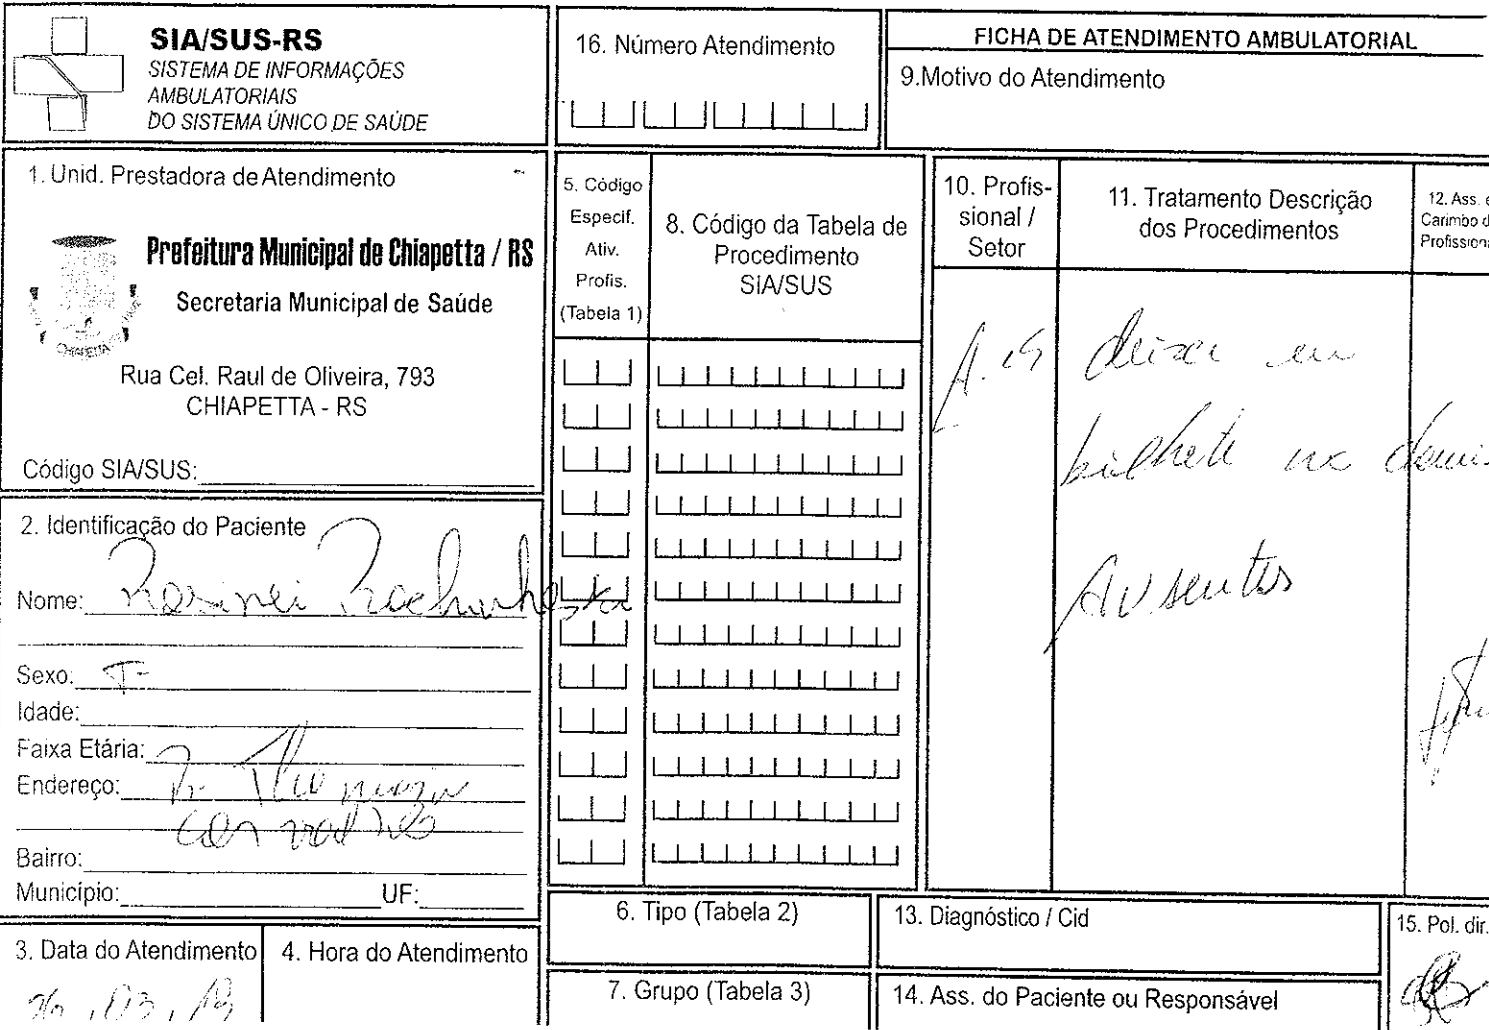 SIA/SUS-RS
SISTEMA DE INFORMAÇÕES
AMBULATORIAIS
DO SISTEMA ÚNICO DE SAÚDE
16. Número Atendimento
FICHA DE ATENDIMENTO AMBULATORIAL
9.Motivo do Atendimento
1. Unid. Prestadora de Atendimento
Prefeitura Municipal de Chiapetta / RS
Secretaria Municipal de Saúde
CHIAPETTA
Rua Cel. Raul de Oliveira, 793
CHIAPETTA - RS
Código SIA/SUS:
5. Código
Especif.
Ativ.
Profis.
(Tabela 1)
8. Código da Tabela de
Procedimento
SIA/SUS
10. Profis-
sional /
Setor
11. Tratamento Descrição
dos Procedimentos
12. Ass. e
Carimbo d
Profissiona
deixei um
bilhete no
Ausentes
2. Identificação do Paciente
Nome:
Sexo: F
Idade:
Faixa Etária:
Endereço:
Bairro:
Município: UF:
3. Data do Atendimento
26 / 03 /
4. Hora do Atendimento
6. Tipo (Tabela 2)
7. Grupo (Tabela 3)
13. Diagnóstico / Cid
14. Ass. do Paciente ou Responsável
15. Pol. dir.